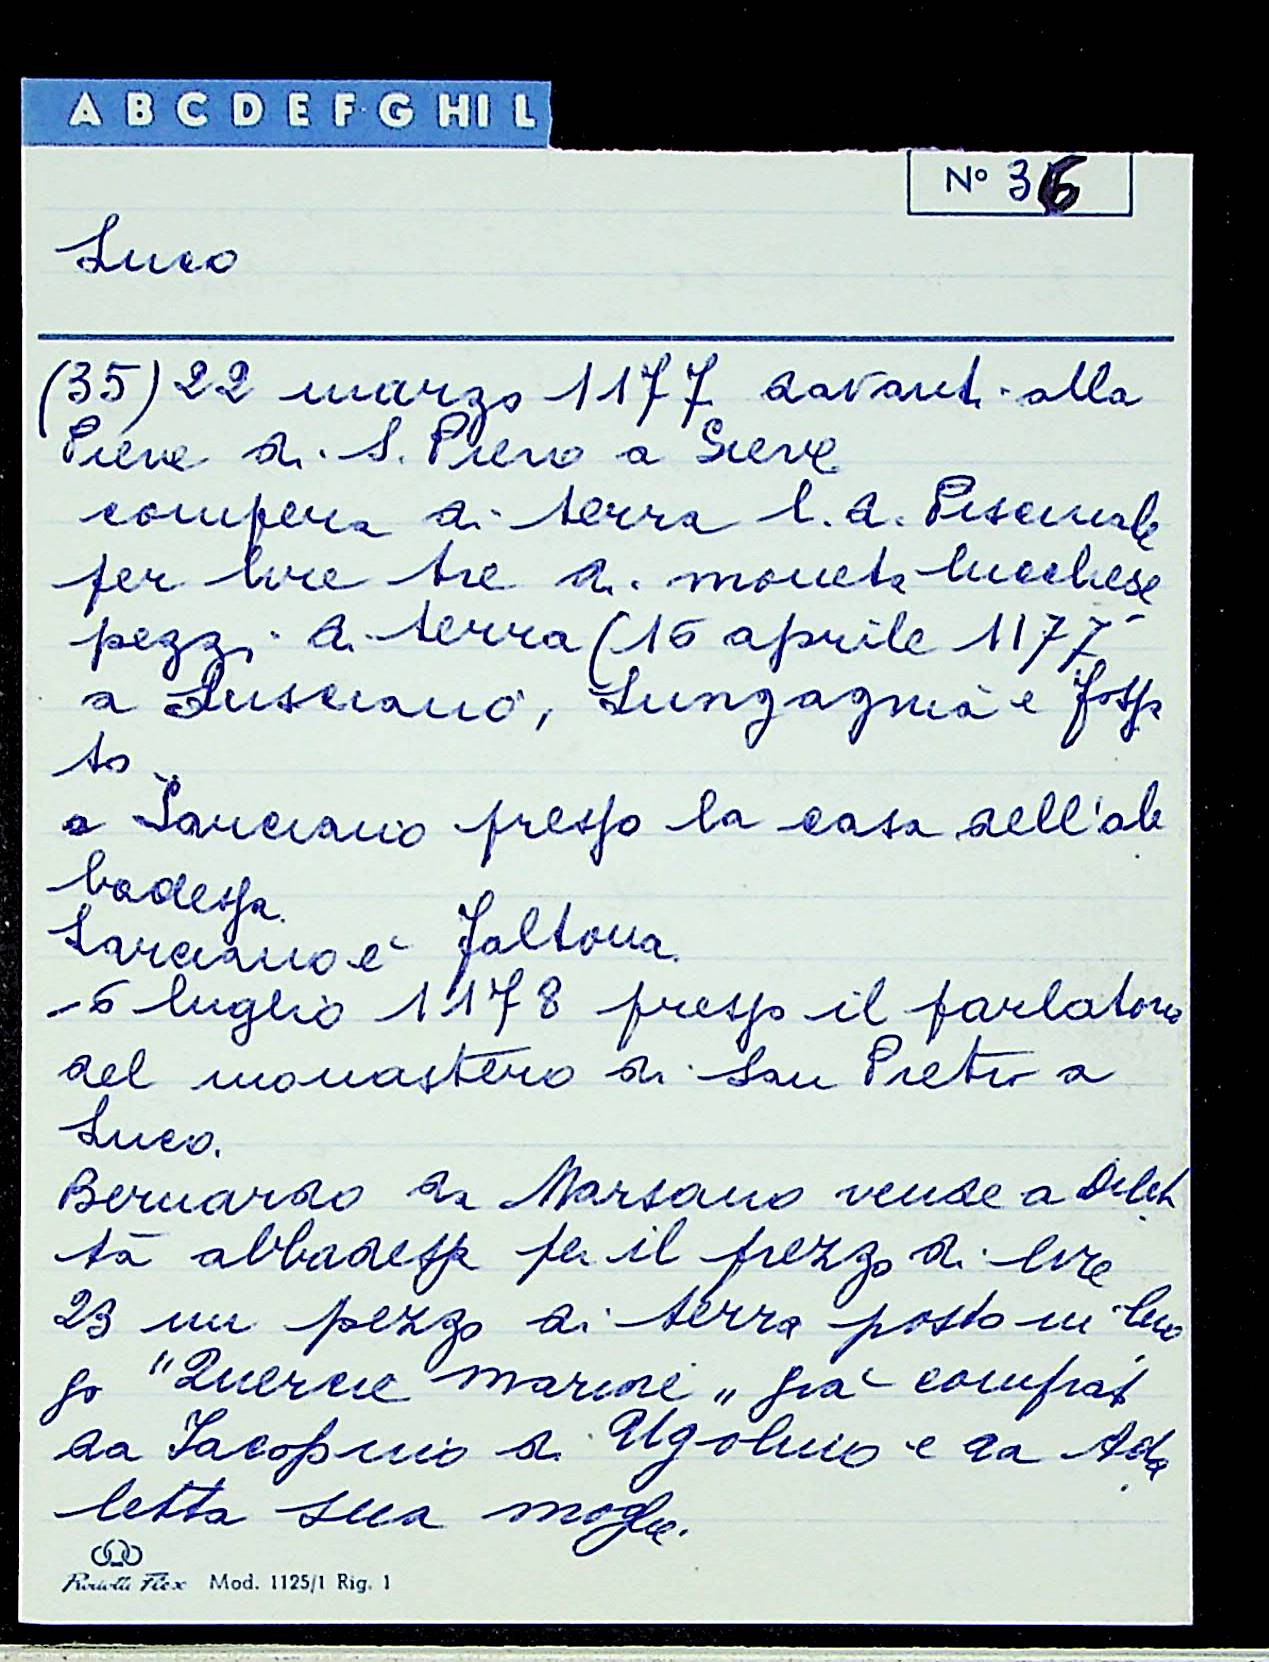 A B C D E F G H I L
N° 36
Luco
(35) 22 marzo 1177 davanti alla
Pieve di S. Piero a Sieve
compera di terra l. d. Piscinale
per lire tre di moneta lucchese
pezzi di terra (16 aprile 1177
a Lusciano, Lungagnia e Fossa
to
a Larciano presso la casa dell'ab
badessa.
Larciano è Faltona.
- 6 luglio 1178 presso il parlatorio
del monastero di San Pietro a
Luco.
Bernardo da Marsano vende a
ta abbadessa per il prezzo di lire
23 un pezzo di terra posto in luo
go "Quercie marine" già comprat
da Jacopino di Ugolino e da Ada
letta sua moglie.
Flex Mod. 1125/1 Rig. 1